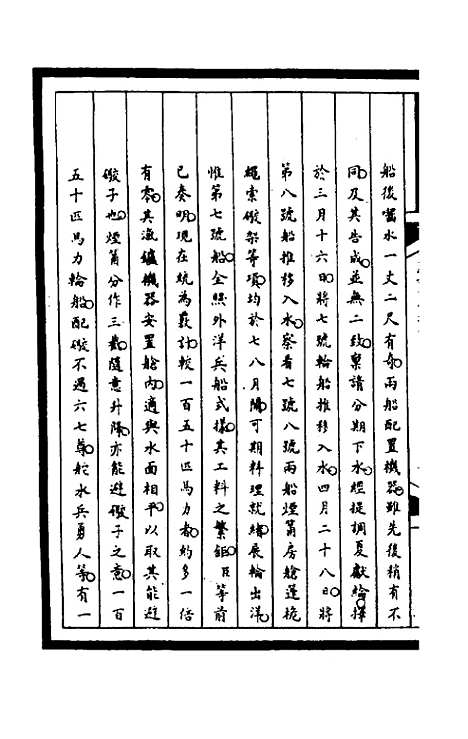 船後噹水一丈二尺有奇兩船配置機器雖先後稍有不
同及其告成並無二致稟請分期下水經提調夏獻綸擇
於三月十六日將七號輪船推移入水四月二十八日將
第八號船推移入水察看七號八號兩船煙筩房艙蓬桅
繩索礮架等項均於七八月間可期料理就緒展輪出洋
惟第七號船全照外洋兵船式樣其工料之繁鉅臣等前
已奏明現在統為覈計較一百五十匹馬力者約多一倍
有零其汽爐機器安置艙內適與水面相平以取其能避
礮子也煙筩分作三截隨意升降亦能避礮子之意一百
五十匹馬力輪船配礮不過六七尊舵水兵勇人等有一